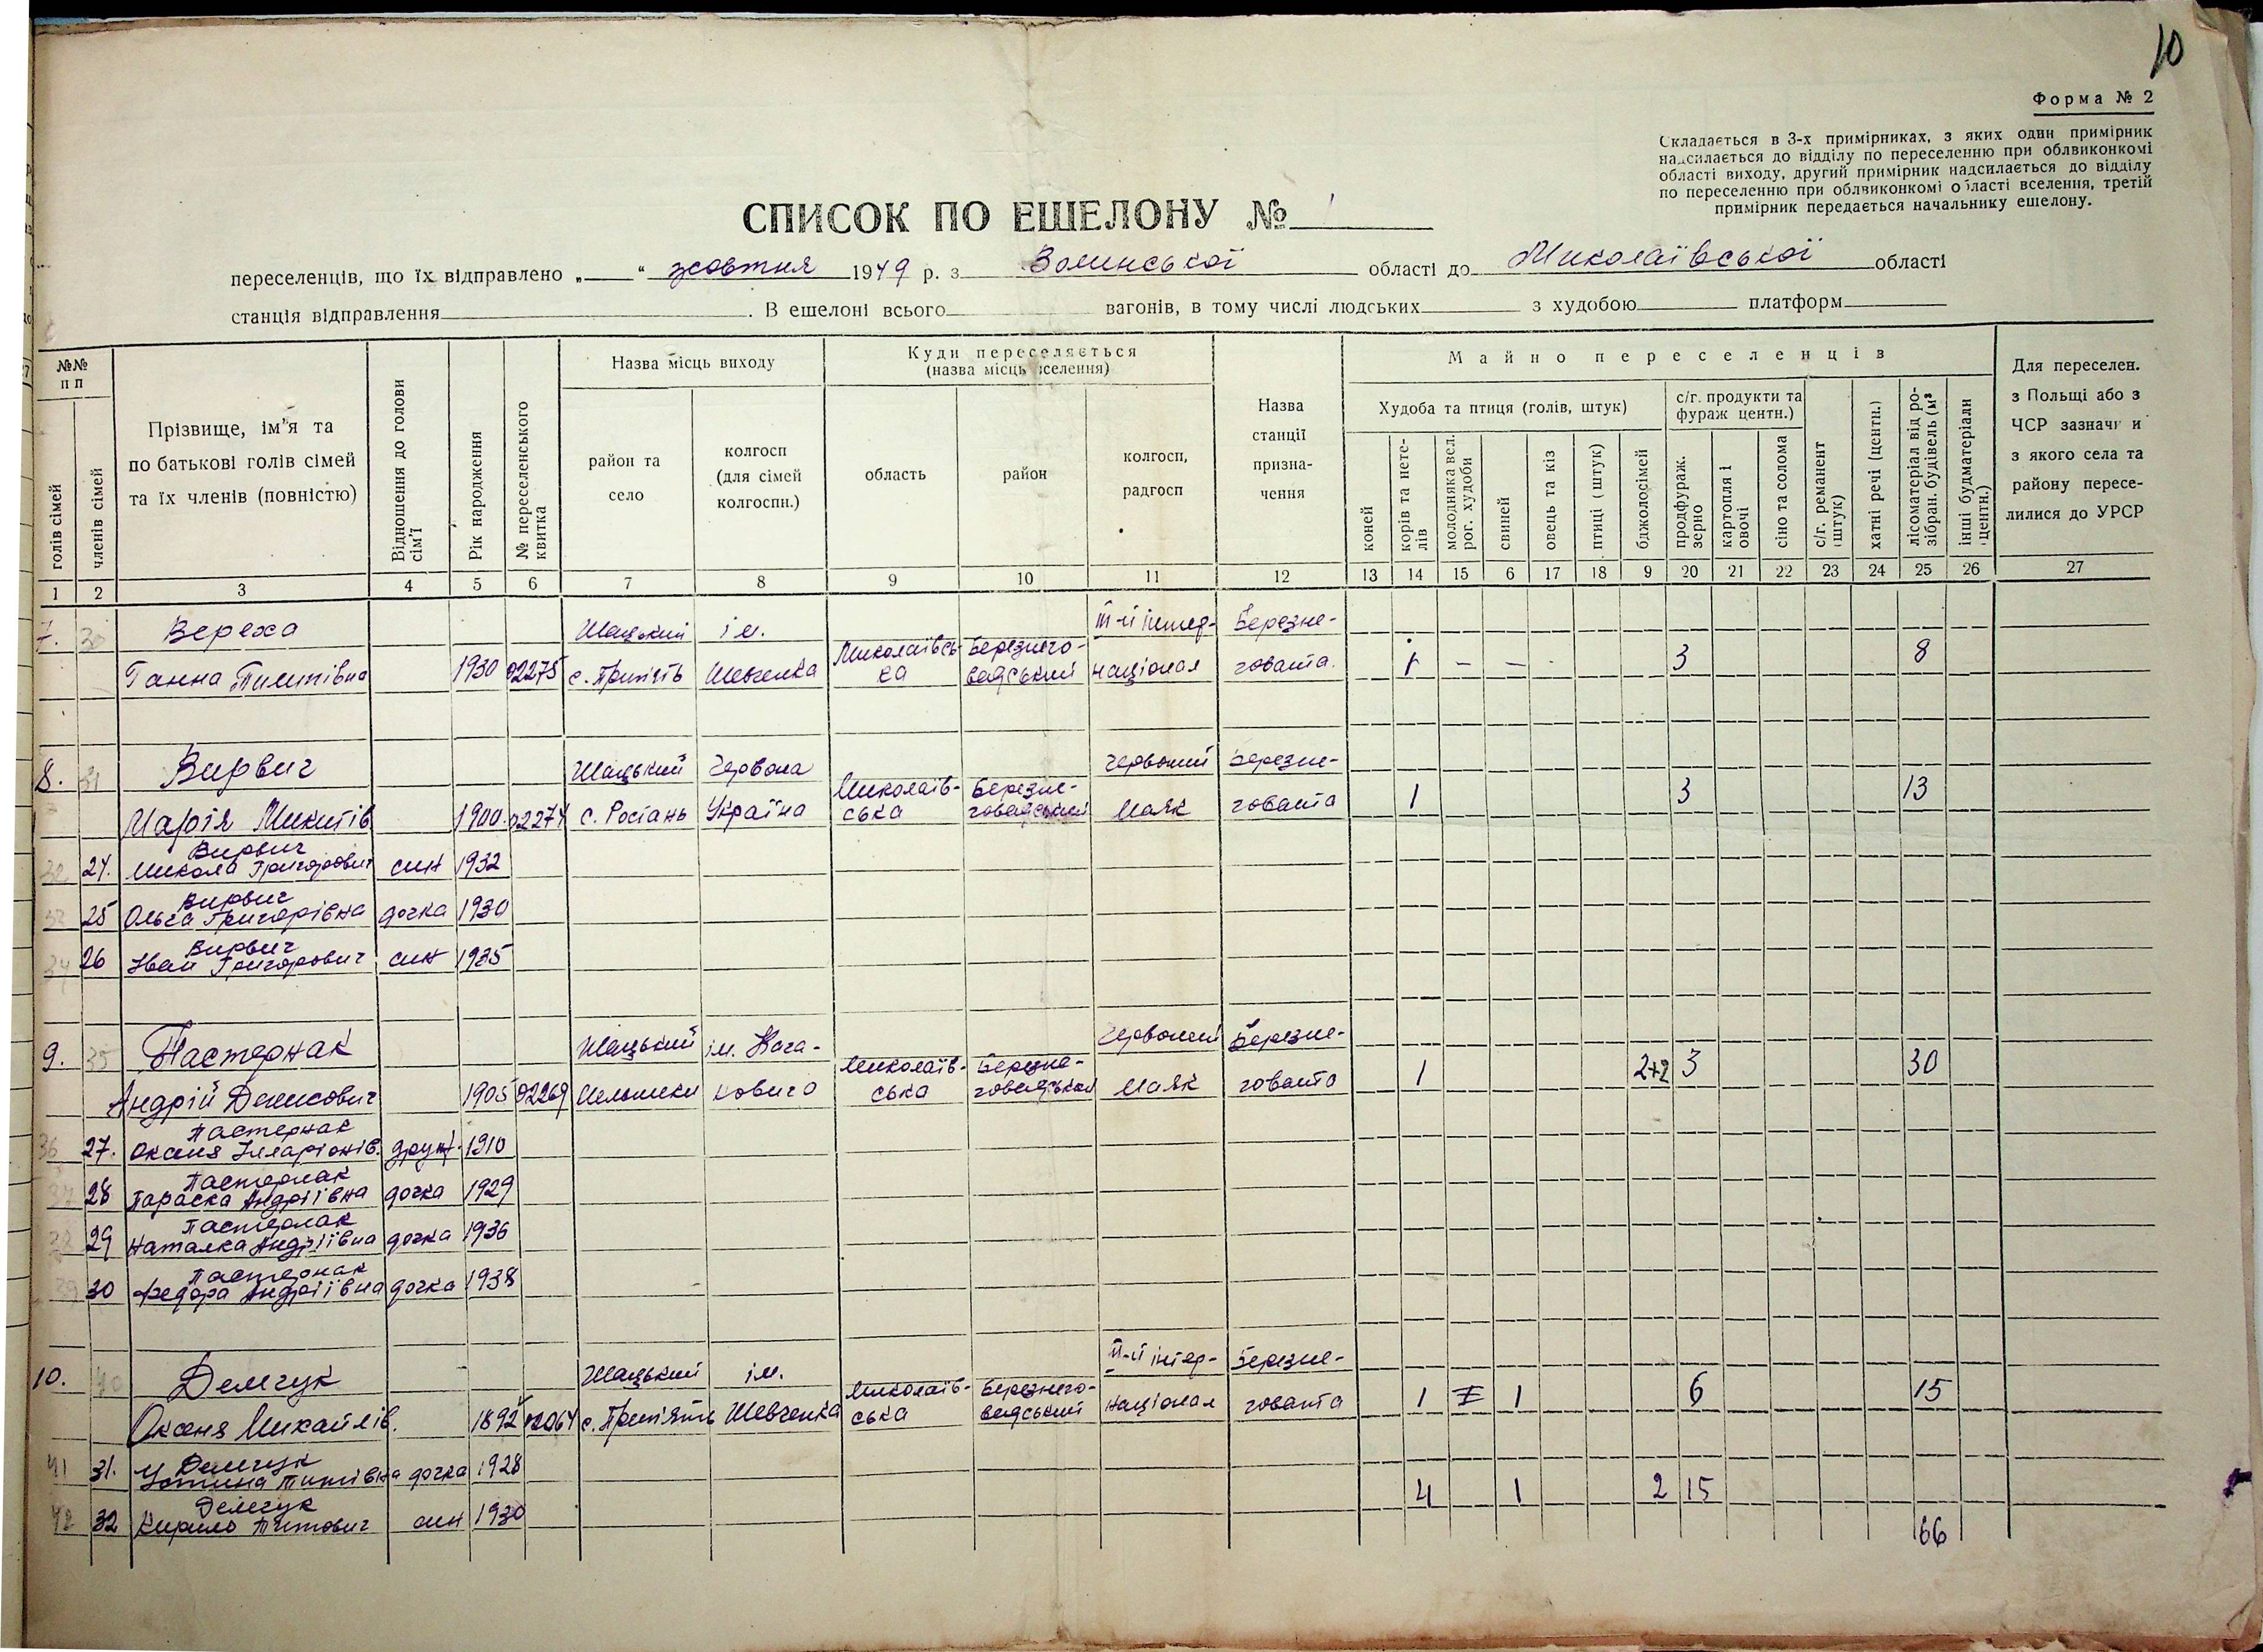 10
Форма № 2
Складається в 3-х примірниках, з яких один примірник
надсилається до відділу по переселенню при облвиконкомі
області виходу, другий примірник надсилається до відділу
по переселенню при облвиконкомі області вселення, третій
примірник передається начальнику ешелону.
СПИСОК ПО ЕШЕЛОНУ № 1
переселенців, що їх відправлено „ “ жовтня 1949 р. з Волинської області до Миколаївської області
станція відправлення . В ешелоні всього вагонів, в тому числі людських з худобою платформ
№№ п п
голів сімей
членів сімей
Прізвище, ім'я та по батькові голів сімей та їх членів (повністю)
Відношення до голови сім'ї
Рік народження
№ переселенського квитка
Назва місць виходу
район та село
колгосп (для сімей колгоспн.)
Куди переселяється (назва місць вселення)
область
район
колгосп, радгосп
Назва станції призна- чення
Майно переселенців
Худоба та птиця (голів, штук)
коней
корів та нете- лів
молодняка вел. рог. худоби
свиней
овець та кіз
птиці (штук)
бджолосімей
с/г. продукти та фураж центн.)
продфураж. зерно
картопля і овочі
сіно та солома
с/г. реманент (штук)
хатні речі (центн.)
лісоматеріал від ро- зібран. будівель (м³
інші будматеріали (центн.)
Для переселен. з Польщі або з ЧСР зазначи и з якого села та району пересе- лилися до УРСР
1 2 3 4 5 6 7 8 9 10 11 12 13 14 15 6 17 18 9 20 21 22 23 24 25 26 27
7. 30 Вереха Шацький ім. Березне-
Ганна Тимішівна 1930 02275 с. Прип'ять Шевченка Миколаївсь- ка Березнего- вадський націонал говата. 1 – – 3 8
8. 31 Вирвич Шацький Червона Червоний Березне-
Марія Микитів 1900 02274 с. Ростань Україна Миколаїв- ська Березне- говадський Маяк говата 1 3 13
32 24. Вирвич Микола Григорович син 1932
33 25 Вирвич Ольга Григорівна дочка 1930
34 26 Вирвич Іван Григорович син 1935
9. 35 Пастернак Шацький ім. Кага- Червоний Березне-
Андрій Денисович 1905 02269 Мельники новича Миколаїв- ська Березне- говадський Маяк говата 1 2+2 3 30
36 27. Пастернак Оксеня Іларіонів. друж. 1910
37 28 Пастернак Параска Андріївна дочка 1929
38 29 Пастернак Наталка Андріївна дочка 1936
39 30 Пастернак Федора Андріївна дочка 1938
10. 40 Демчук Шацький ім. інтер- Березне-
Оксеня Михайлів. 1892 02064 с. Прип'ять Шевченка Миколаїв- ська Березнего- вадський націонал говата 1 1 6 15
41 31. Демчук Устина Титівна дочка 1928
4 1 2 15
42 32 Демчук Кирило Титович син 1930
66